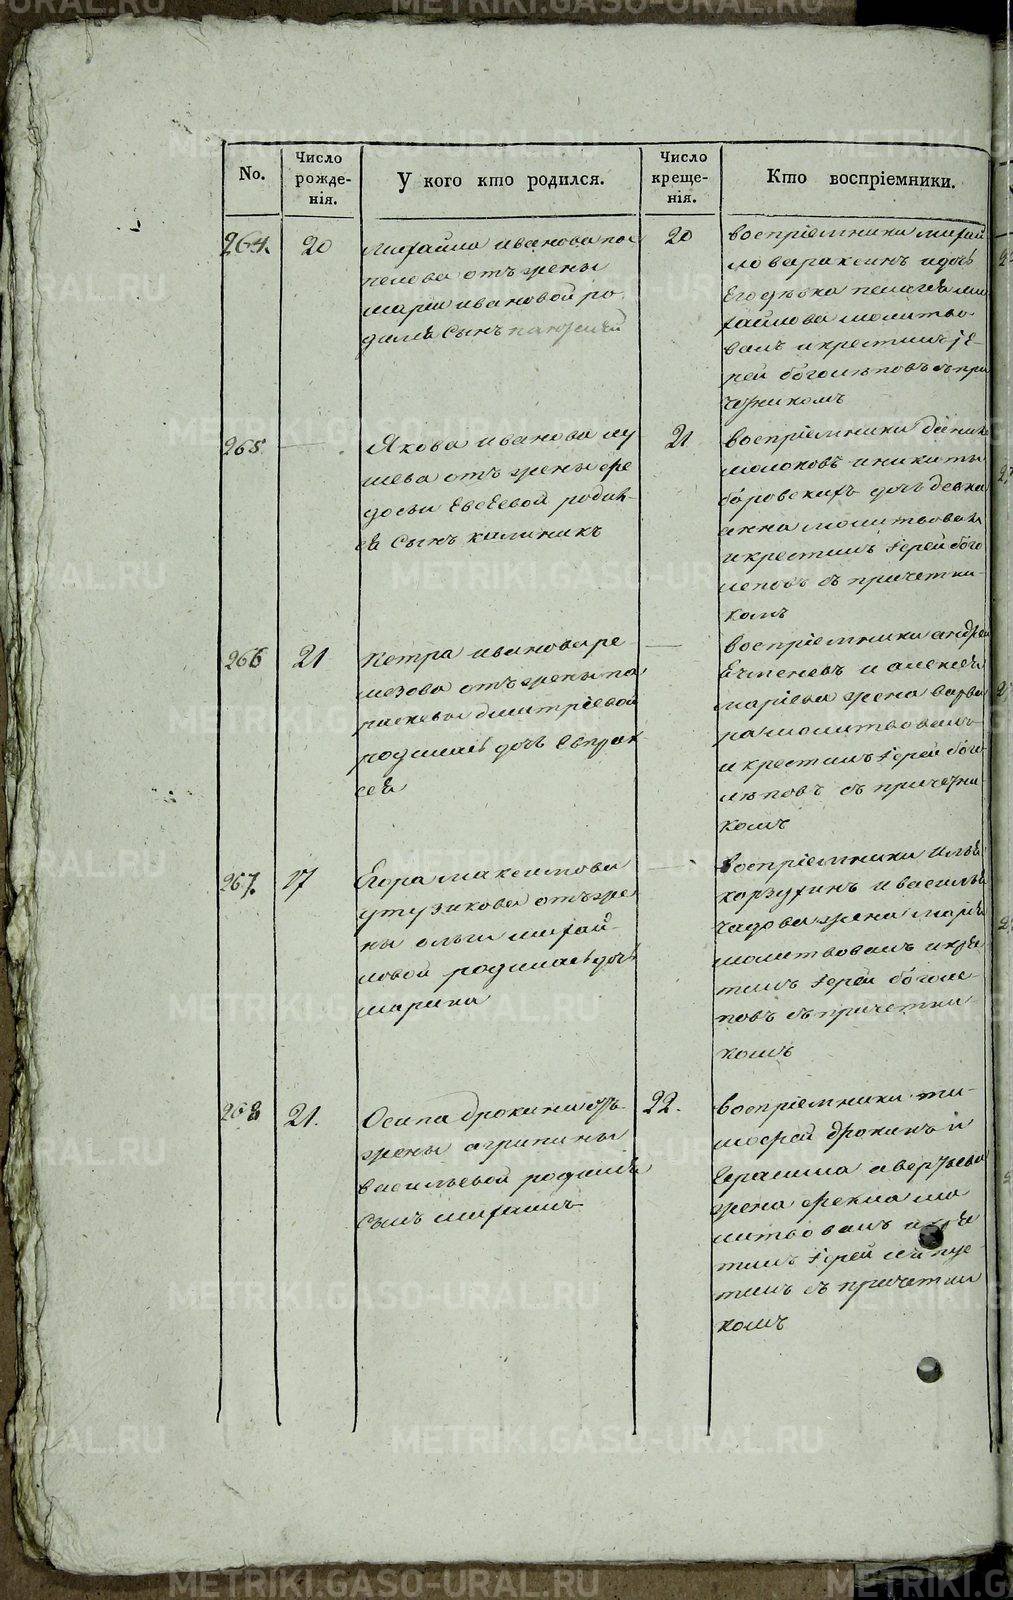 No.
Число рожденія.
У кого кто родился.
Число крещенія.
Кто воспріемники.
264.
20
михайла иванова по
пелова отъ жены
маріи ивановой ро
дился сынъ
20
воспріемники михай
ло вараксинъ и дочь
его дѣвка пелагея ми
хайлова молитво
валъ и крестилъ іе
рей боголѣповъ съ при
чтникомъ
265
Якова иванова лу
шева отъ жены фе
досьи Евсеевой родил
ся сынъ калиникъ
21
воспріемники
молоковъ и никиты
боровскихъ дочь девка
анна молитвовалъ
и крестилъ іерей бого
леповъ съ причетни
комъ
266
21
Петра иванова ре
мезова отъ жены па
расковьи дмитріевой
родилась дочь Евпрак
сея
воспріемники андрей
и алексея
жена варва
ра молитвовалъ
и крестилъ іерей бого
лѣповъ съ причетни
комъ
267.
17
Егора максимова
утузикова отъ же
ны ольги михай
ловой родилась дочь
марина
воспріемники илья
корзухинъ и василья
чадова жена марья
молитвовалъ и кре
тилъ іерей боголе
повъ съ причетни
комъ
268
21.
Осипа брокина отъ
жены агрипины
васильевой родился
сынъ михаилъ
22.
воспріемники ти
мофей брокинъ и
Герасима аверкьева
жена фекла мо
литвовалъ и кре
тилъ іерей
съ причетни
комъ
METRIKI.GASO-URAL.RU